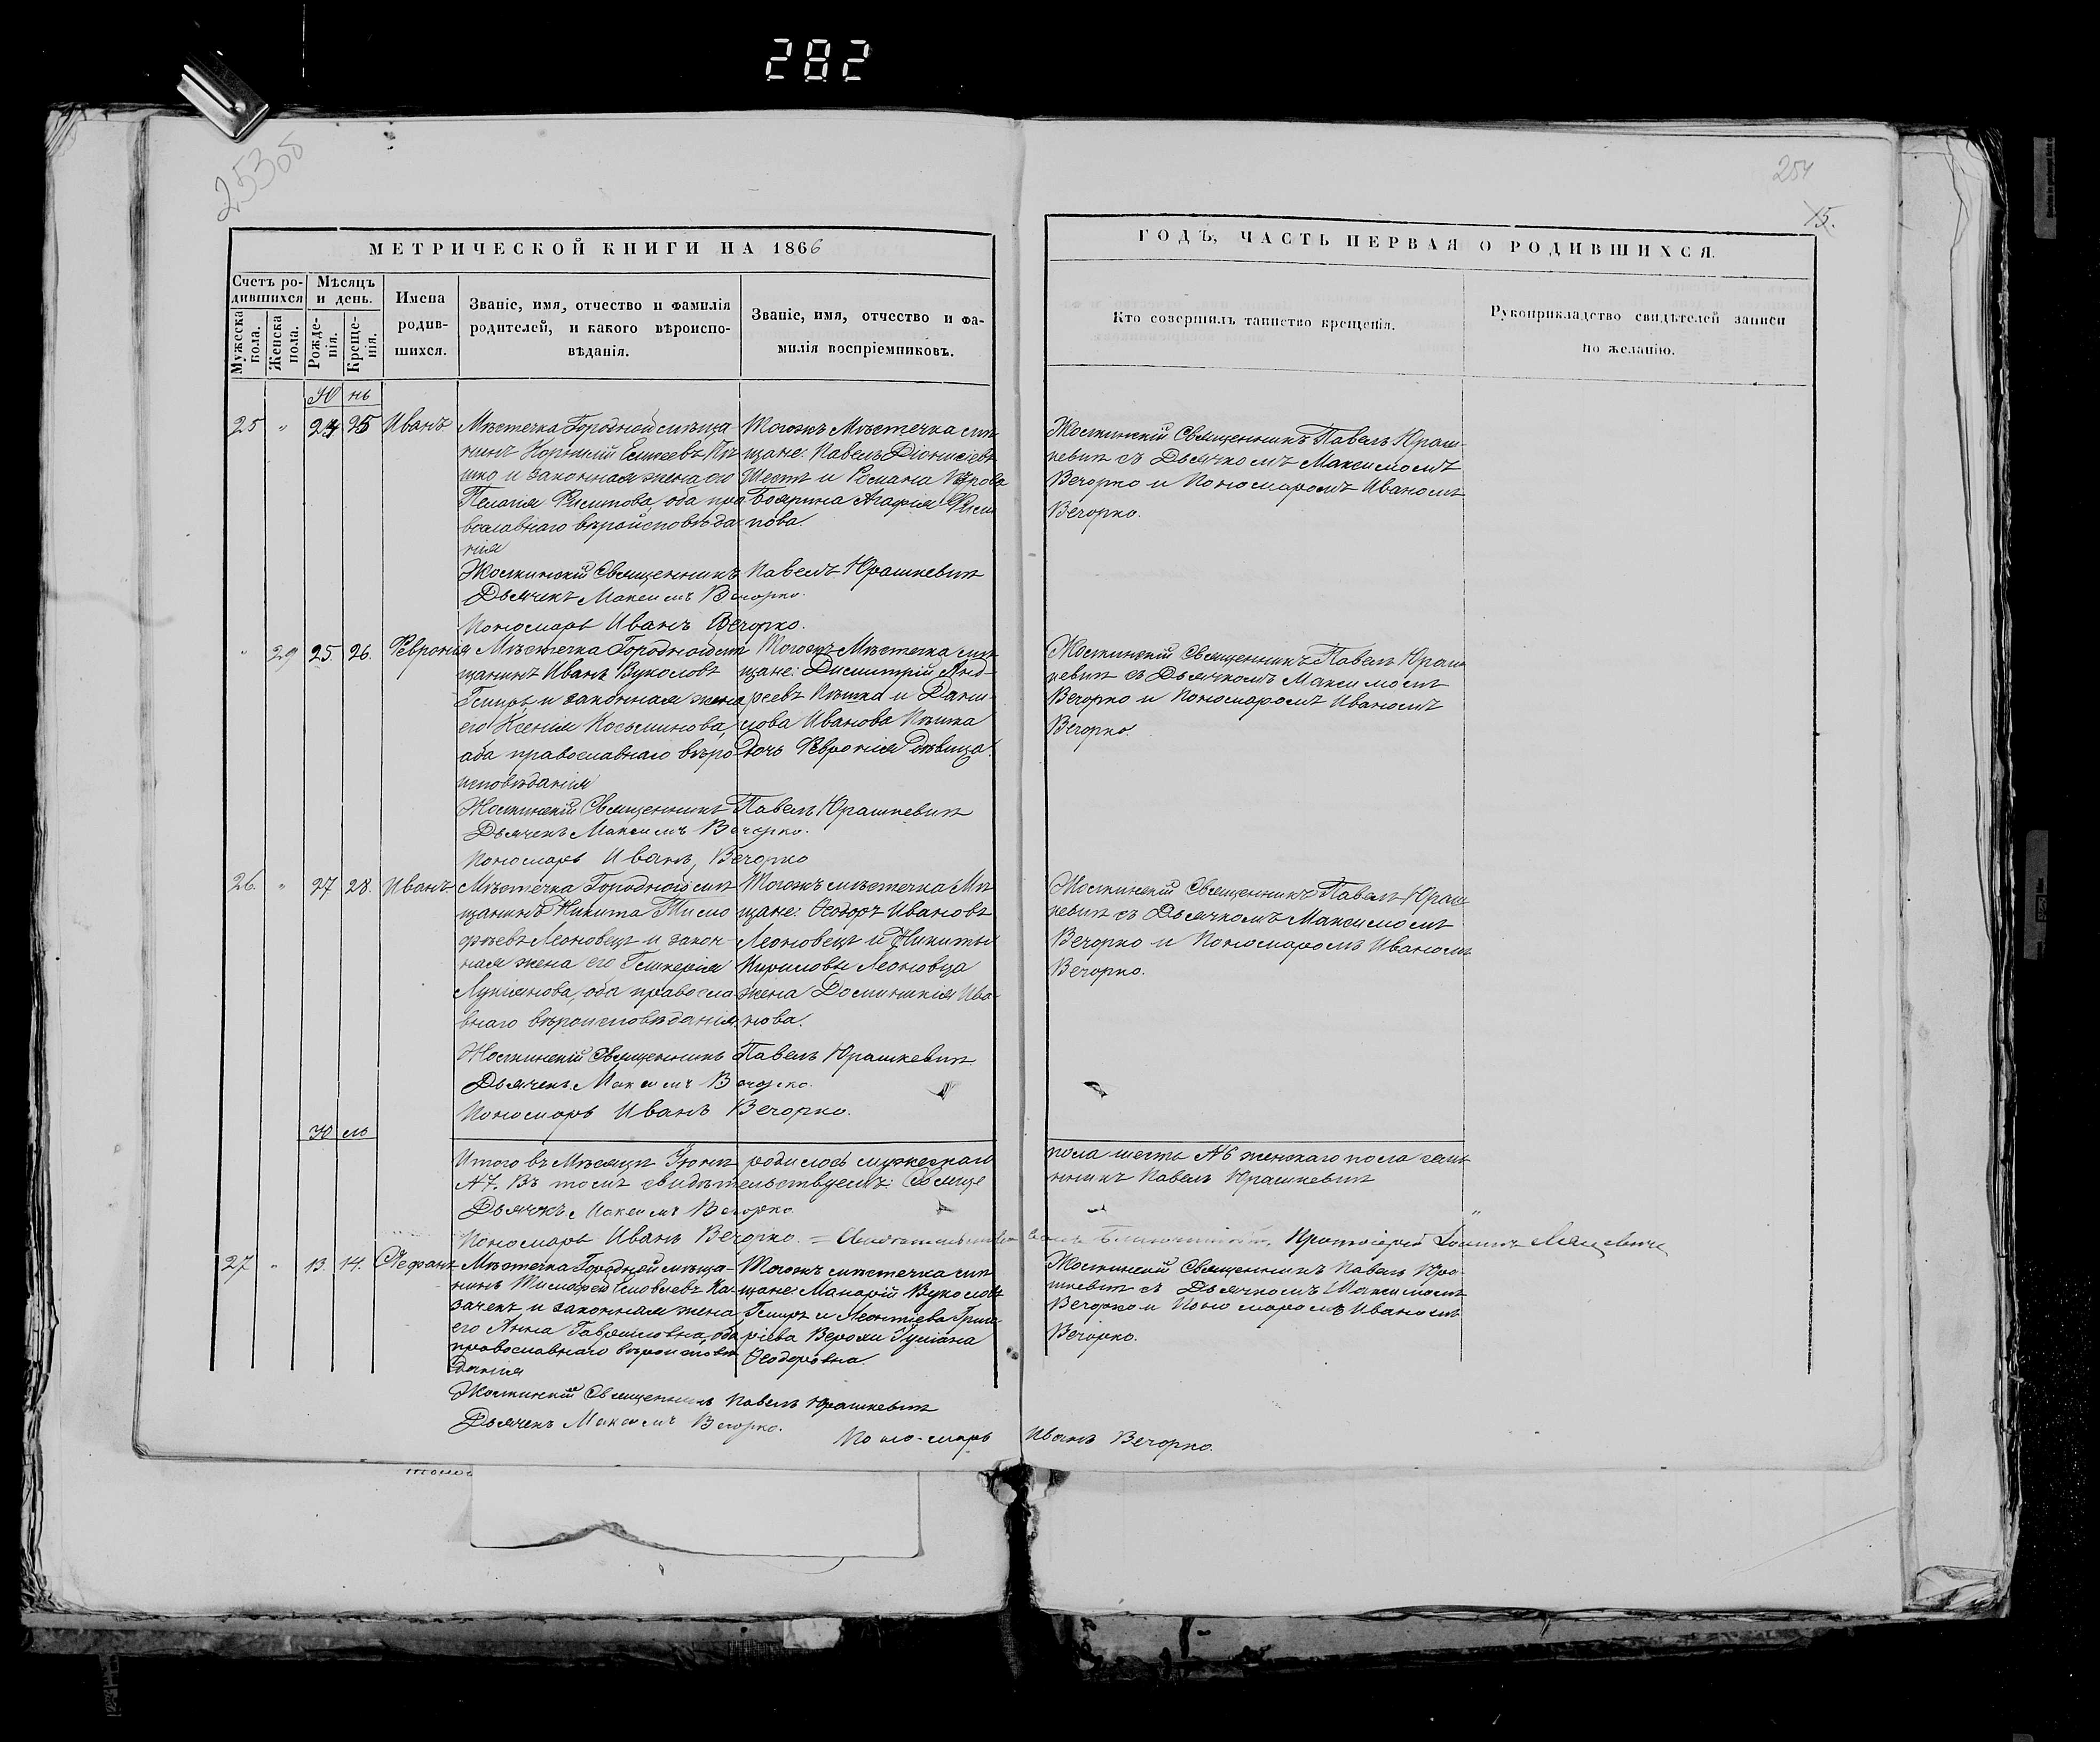 282
253об
254
15.
МЕТРИЧЕСКОЙ КНИГИ НА 1866
ГОДЪ, ЧАСТЬ ПЕРВАЯ О РОДИВШИХСЯ.
Счетъ родившихся
Мужеска пола.
Женска пола.
Мѣсяцъ и день.
Рожденія.
Крещенія.
Имена
родив-
шихся.
Званіе, имя, отчество и фамилія
родителей, и какого вѣроиспо-
вѣданія.
Званіе, имя, отчество и фа-
милія воспріемниковъ.
Кто совершилъ таинство крещенія.
Рукоприкладство свидѣтелей записи
по желанію.
Юнь
25 " 24 25 Иванъ
Мѣстечка Городной мѣща
нинъ Корнилій Елисеевъ Пѣ
шко и законная жена его
Пелагія Филипова, оба пра
вославнаго вѣроисповѣда
нія
Тогожъ Мѣстечка мѣ
щане: Павелъ Діонисіевъ
Шестъ и Романа
Боярина Агафія Фили
пова.
Жолкинскій Священникъ Павелъ Юраш-
кевичъ съ Дьячкомъ Максимомъ
Вечорко и Пономаромъ Иваномъ
Вечорко.
Жолкинскій Священникъ Павелъ Юрашкевичъ
Дьячекъ Максимъ Вечорко.
Пономарь Иванъ Вечорко.
" 29 25. 26. Февронія
Мѣстечка Городной мѣ
щанинъ Иванъ Вуколовъ
Гмиръ и законная жена
его Ксенія Косьминова,
оба православнаго вѣро
исповѣданія
Тогожъ Мѣстечка мѣ
щане: Димитрій Анд-
реевъ Пѣшка и Дани-
лова Иванова Пѣшка
дочь Февронія Дѣвица.
Жолкинскій Священникъ Павелъ Юраш
кевичъ съ Дьячкомъ Максимомъ
Вечорко и Пономаромъ Иваномъ
Вечорко.
Жолкинскій Священникъ Павелъ Юрашкевичъ
Дьячекъ Максимъ Вечорко.
Пономарь Иванъ Вечорко
26. " 27 28. Иванъ
Мѣстечка Городного мѣ
щанинъ Никита Тимо
фѣевъ Леоновецъ и закон-
ная жена его Гликерія
Лукіянова, оба правосла-
внаго вѣроисповѣданія,
Тогожъ мѣстечка Мѣ
щане: Ѳеодоръ Ивановъ
Леоновецъ и Никиты
Кириловы Леоновца
жена Домникія Ива-
нова.
Жолкинскій Священникъ Павелъ Юраш
кевичъ съ Дьячкомъ Максимомъ
Вечорко и Пономаромъ Иваномъ
Вечорко.
Жолкинскій Священникъ Павелъ Юрашкевичъ
Дьячекъ Максимъ Вечорко.
Пономарь Иванъ Вечорко.
Юль
Итого въ Мѣсяцѣ Іюнѣ родилось мужескаго пола шесть №6 женскаго пола семь
№7. Въ томъ свидѣтельствуемъ: Священникъ Павелъ Юрашкевичъ
Дьячекъ Максимъ Вечорко.
Пономарь Иванъ Вечорко. = Протоіерей Іоаннъ
27 " 13. 14.
Мѣстечка Городной мѣща-
нинъ Тимофей Ка-
зачекъ и законная жена
его Анна Гавриловна, оба
православнаго вѣроисповѣ
данія
Тогожъ мѣстечка мѣ
щане: Макарій Вуколовъ
Гмиръ и Леонтіева Григо
ріева Іуліана
Ѳеодоровна.
Жолкинскій Священникъ Павелъ Юра-
шкевичъ съ Дьячкомъ Максимомъ
Вечорко и Пономаромъ Иваномъ
Вечорко.
Жолкинскій Священникъ Павелъ Юрашкевичъ
Дьячекъ Максимъ Вечорко.
Пономарь Иванъ Вечорко.